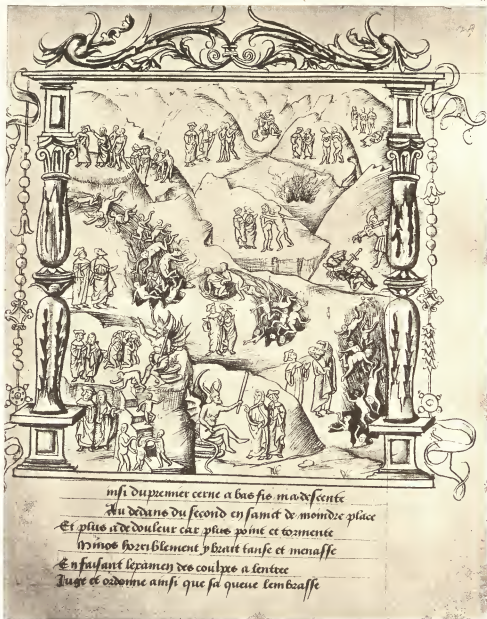 insi du premier cerne a bas fis ma descente
Au dedans du second en sainct de moindre place
Et plus a de douleur car plus point et tormente
Minos horriblement y brait tanse et menasse
En faisant lexamen des coulpes a lentree
Juge et ordonne ainsi que sa queue lembrasse